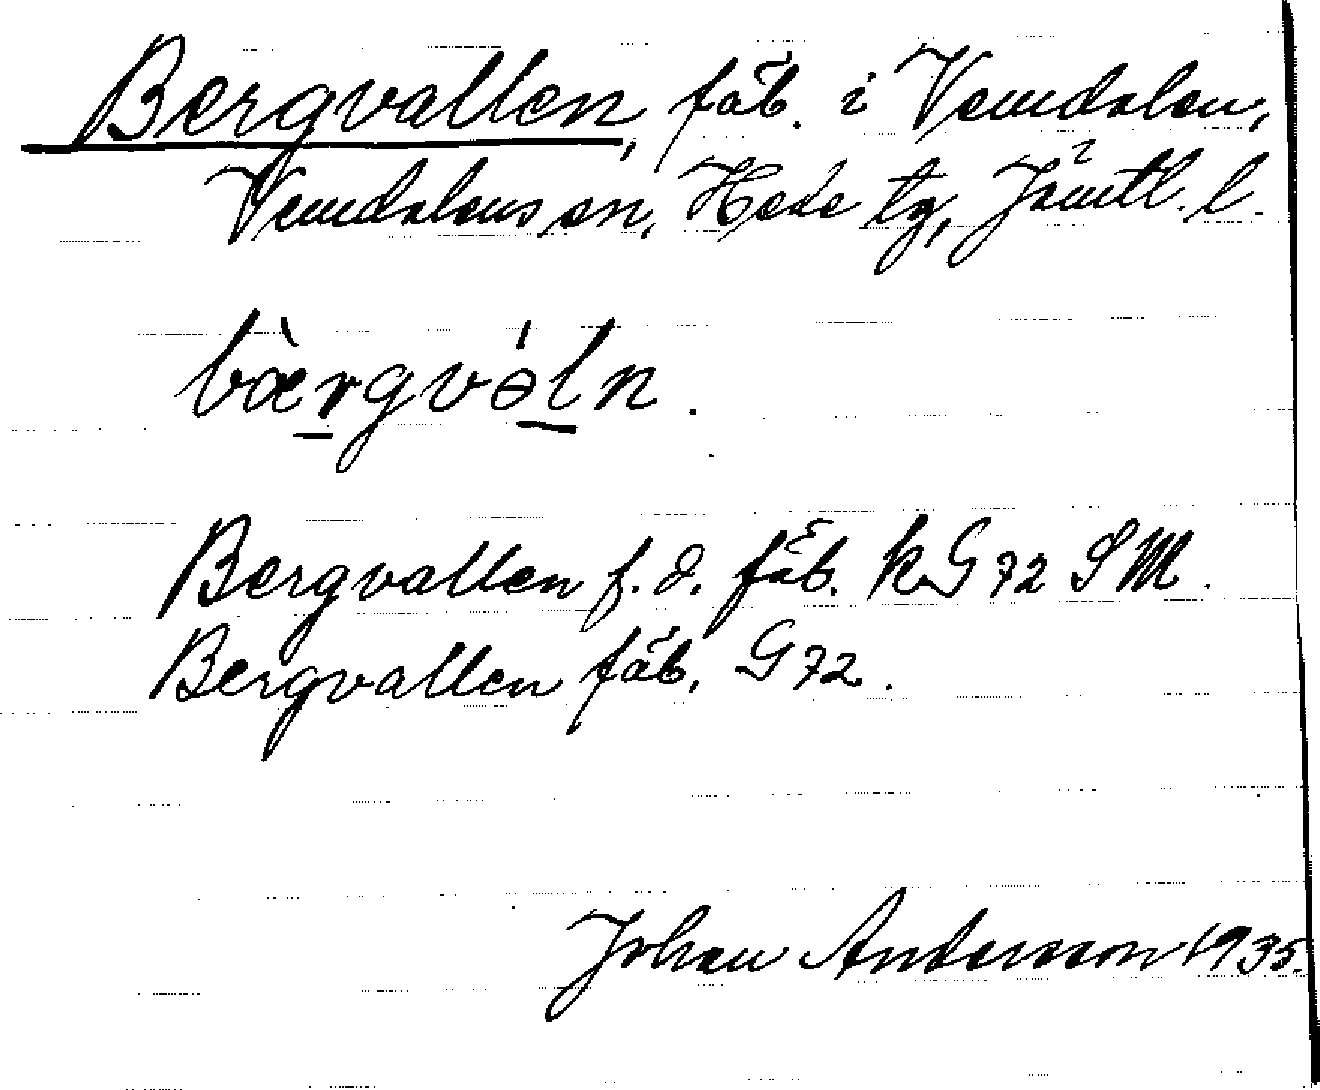 Bergvallen, fäb. i Vemdalen,
Vemdalens sn, Hede tg, Jämtl. l.
bæ̀rgvə́ln.
Bergvallen f.d. fäb. kG72 SM.
Bergvallen fäb. G72.
Johan Andersson 1935.